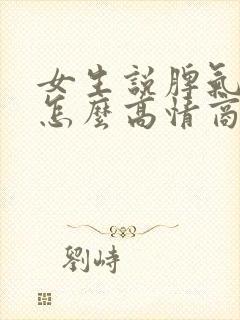 女生説脾氣
怎麼高情商
劉峙